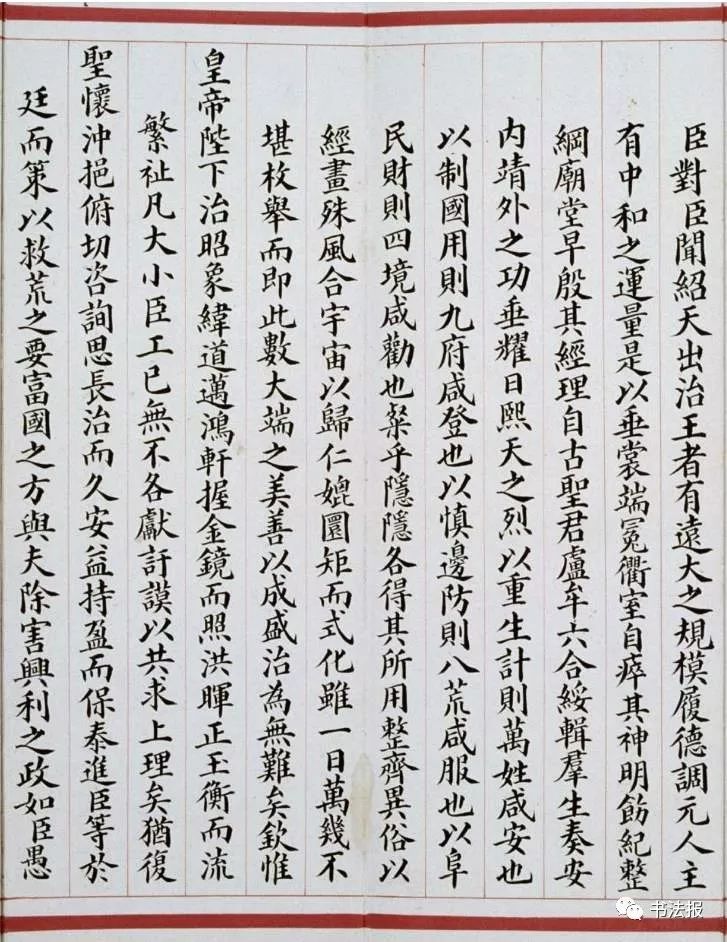 臣對臣聞紹天出治王者有遠大之規模履德調元人主
有中和之運量是以垂裳端冕衢室自瘁其神明飭紀整
綱廟堂早殷其經理自古聖君盧牟六合綏輯羣生奏安
内靖外之功垂耀日熙天之烈以重生計則萬姓咸安也
以制國用則九府咸登也以慎邊防則八荒咸服也以阜
民財則四境咸勸也粲乎隱隱各得其所用整齊異俗以
經畫殊風合宇宙以歸仁媲圜矩而式化雖一日萬幾不
堪枚舉而即此數大端之美善以成盛治為無難矣欽惟
皇帝陛下治昭象緯道邁鴻軒握金鏡而照洪暉正玉衡而流
繁祉凡大小臣工已無不各獻訏謨以共求上理矣猶復
聖懷沖挹俯切咨詢思長治而久安益持盈而保泰進臣等於
廷而策以救荒之要富國之方與夫除害興利之政如臣愚
书法报